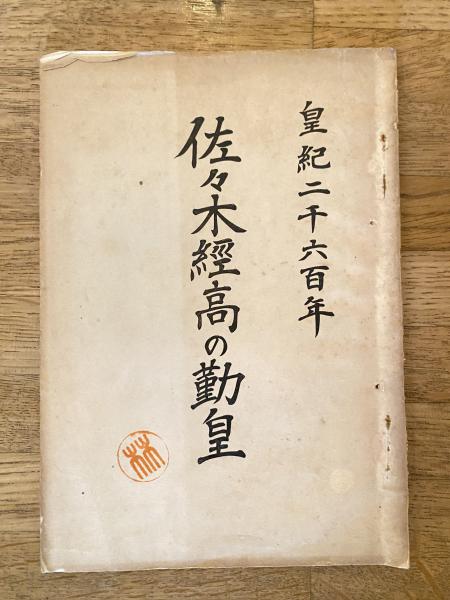 皇紀二千六百年
佐々木經高の勤皇
林